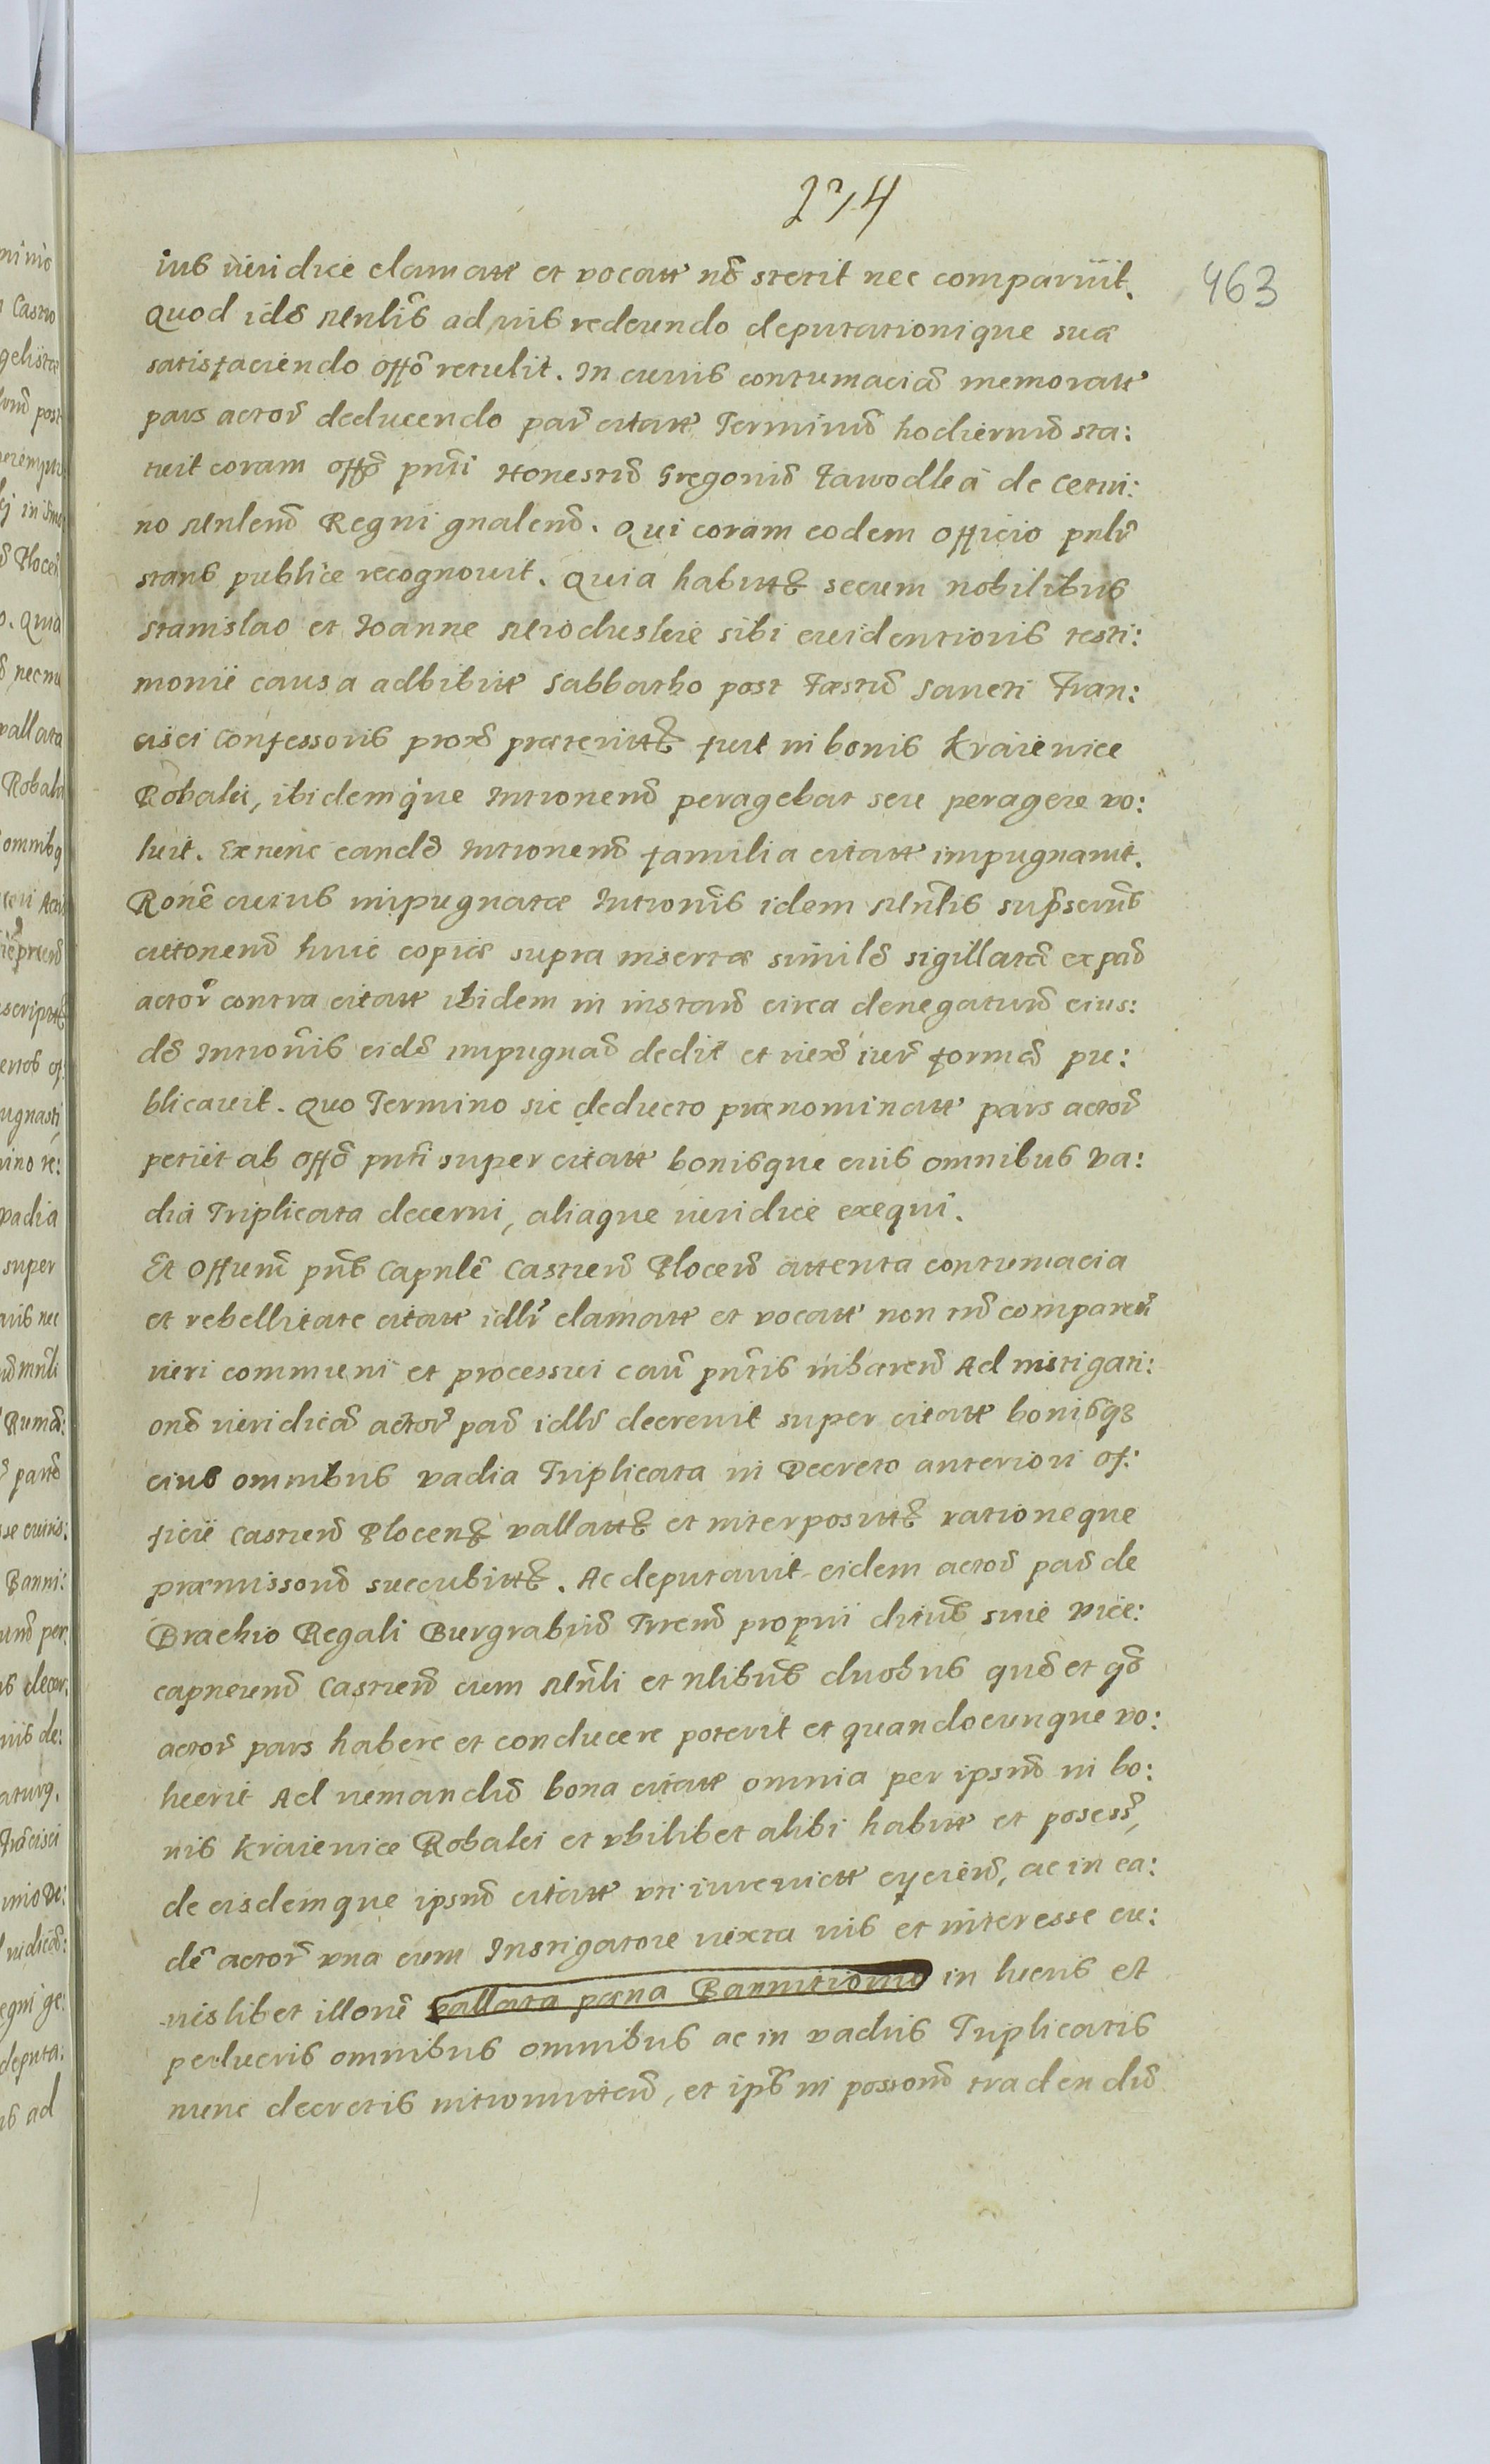 274
463
ius iuridice clamatt et vocatt nō stetit nec comparuit.
Quod idē Mnlis ad ius redeundo deputationique suæ
satisfaciendo offō retulit. In cuius contumaciā memoratt
pars actoř deducendo pař citatt Terminū hodiernū sta:
tuit coram offō pnti Honestū Gregoriū Jawodlka de Cetwi:
no Mnlem̄ Regni gnalem̄. Qui coram eodem Officio pnlr̄
stans publice recognouit. Quia habitt̄ secum nobilibus
Stanislao et Joanne Mioduskie sibi euidentioris testi:
monii causa adhibitt Sabbatho post Fæstū Sancti Fran:
cisci Confessoris proxē præteritt̄ fuit in bonis Kraiewice
Robalki, ibidemque Intionem̄ peragebat seu peragere vo:
luit. Ex nunc eandē Intionem̄ familia citatt impugnauit.
Ronē cuius impugnatæ Intionis idem Mnlis supscriptus
citonem̄ huic copiæ supra insertæ similē sigillatā ex pař
actoř contra citatt ibidem in instanti circa denegatū eius:
dē Intionis eidē impugnā dedit et iuxē iuř formā pu:
blicauit. Quo Termino sic deducto prænominatt pars actoř
petiit ab offō pnti super citatt bonisque eius omnibus va:
dia Triplicata decerni, aliaque iuridice exequi.
Et Offium pns Capnlē Castren̄ Plocen̄ attenta contumacia
et rebellitate citatt idlr̄ clamatt et vocatt non tū comparen̄
iuri communi et processui cauē pntis inhæren̄ Ad instigati:
onē iuridicā actoř pař idlr̄ decreuit super citatt bonisq3
eius omnibus vadia Triplicata in Decreto anteriori of:
ficii Castren̄ Plocen̄ vallatt̄ et interpositt̄ rationeque
præmissorū succubitt̄. Ac deputauit eidem actoř pař de
Brachio Regali Burgrabiū Trrenū proprii ditius siue vice:
capneum̄ Castren̄ cum Mnli et nlibus duobus quē et quō
actoř pars habere et conducere poterit et quandocunque vo:
luerit Ad uemandū bona citatt omnia per ipsū in bo:
nis Kraiewice Robalki et vbilibet alibi habitt et possess,
de eisdemque ipsū citatt vti iure victt eyciend̄, ac in ea:
dē actoř vna cum Instigatore iuxta ius et interesse cu:
iuslibet illorū vallata pæna Bannitionis in lucris et
perlucris omnibus omnibus ac in vadiis Triplicatis
nunc decretis intromittend̄, et ipis in possonē tradendū